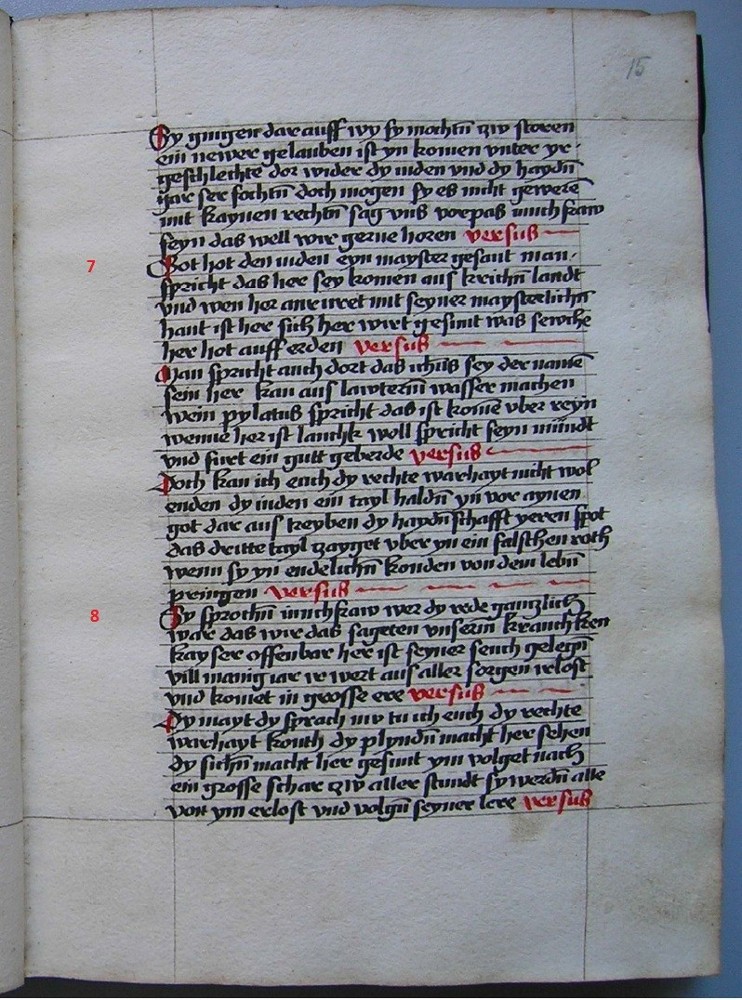 15
Sy gingen dar auff wy sy mochtn̄ zw storen
ein newer gelauben ist yn komen vnter yr
geschlechte dor wider dy iuden vnd dy haydn̄
gar ser fochtn̄ doch mogen sy es nicht gewerē
mit kaynen rechtn̄ sag vns vorpas iunchfraw
seyn das well wir gerne horen versus
7
Got hot den iuden eyn mayster gesant man
spricht das her sey komen aus krichn̄ landt
vnd wen her an ruret mit seyner maysterlichn̄
hant ist her sich her wirt gesunt was sewche
her hot auff erden versus
Man spricht auch dort das ihūs sey der namē
sein her kan aus lawterm̄ wasser machen
wein pylatus spricht das ist komē vber reyn
wenne her ist lanchk woll spricht seyn mundt
vnd furt ein gutt geberde versus
Doch kan ich euch dy rechte warhayt nicht wol
enden dy iuden ein tayl haldn̄ yn vor aynen
got dar aus treyben dy haydn̄schafft yeren spot
das dritte tayl zayget vber yn ein falschen roth
wenn sy yn endelichn̄ konden von dem lebn̄
pringen versus
8
Sy sprochn̄ iunchfraw wer dy rede ganzlich
war das wir das sageten vnserm̄ kranchken
kayser offenbar her ist seyner seuch gelegn̄
vill manig iar er wert aus aller sorgen erlost
vnd komet in grosse ere versus
Dy mayt dy sprach nw tu ich euch dy rechte
warhayt konth dy plyndn̄ macht her sehen
dy sichn̄ macht her gesunt ym volget nach
ein grosse schar zw aller stundt sy werdn̄ alle
von ym erlost vnd volgn̄ seyner lere versus